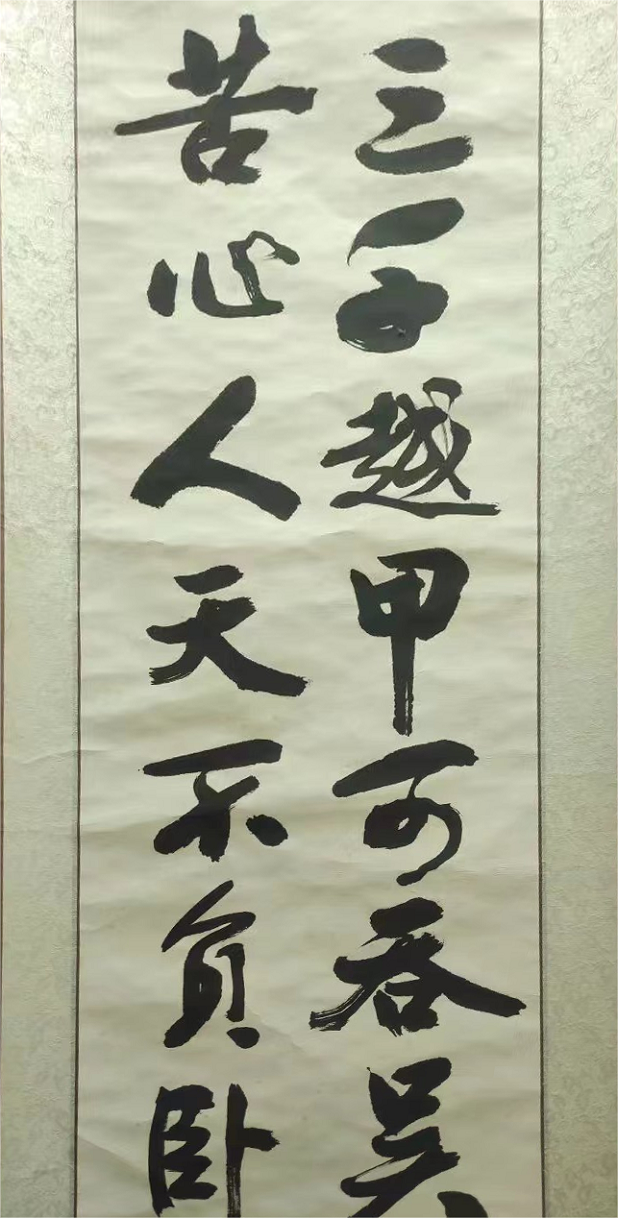 三千越甲可吞吳
苦心人天不負卧